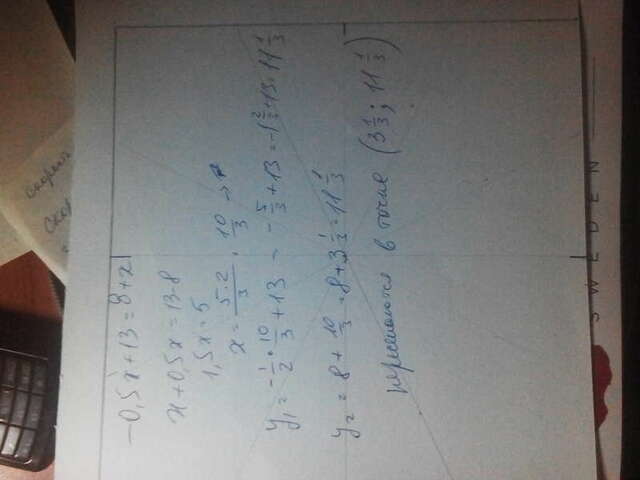 -0,5x+13=8+x
x+0,5x=13-8
1,5x=5
x=\frac{5·2}{3}=\frac{10}{3}
y₁=-\frac{1}{2}·\frac{10}{3}+13=-\frac{5}{3}+13=-1\frac{2}{3}+13=11\frac{1}{3}
y₂=8+\frac{10}{3}=8+3\frac{1}{3}=11\frac{1}{3}
пересекаются в точке (3\frac{1}{3}; 11\frac{1}{3})
SWEDEN